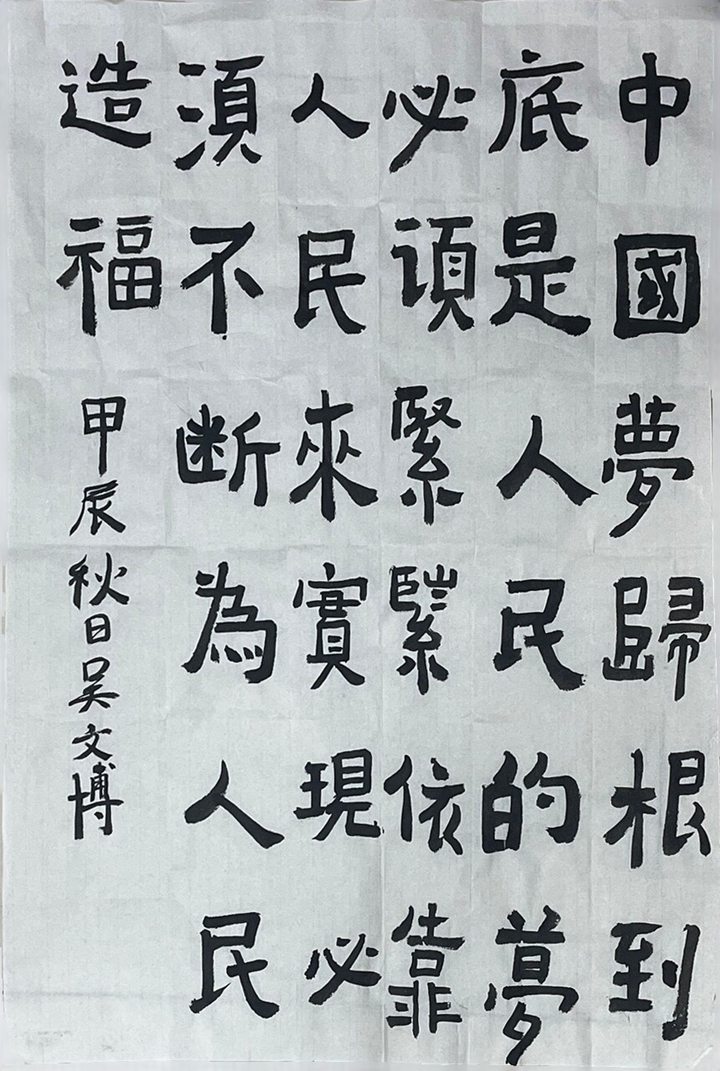 中國夢歸根到
底是人民的夢
必須緊緊依靠
人民來實現必
須不断為人民
造福
甲辰秋日吴文博